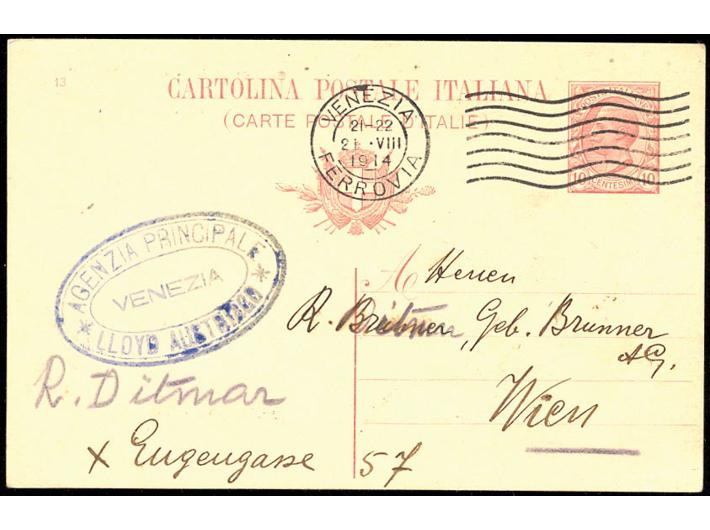 13
CARTOLINA POSTALE ITALIANA
(CARTE POSTALE D'ITALIE)
VENEZIA
21-22
21 · VIII
1914
FERROVIA
POSTE ITALIANE
10 CENTESIMI 10
AGENZIA PRINCIPALE
VENEZIA
* LLOYD AUSTRIACO *
A Herren
R. Geb. Brunner
AG.
Wien
R. Ditmar
x Eugengasse 57